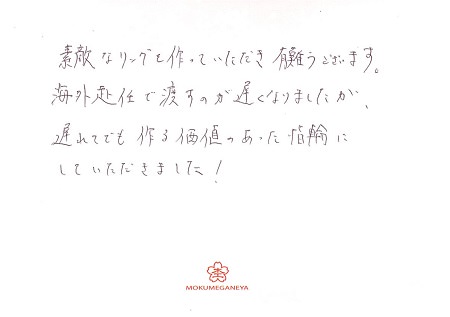 素敵なリングを作っていただき有難うございます。
海外赴任で渡すのが遅くなりましたが、
遅れてでも作る価値のあった指輪に
していただきました!
MOKUMEGANEYA